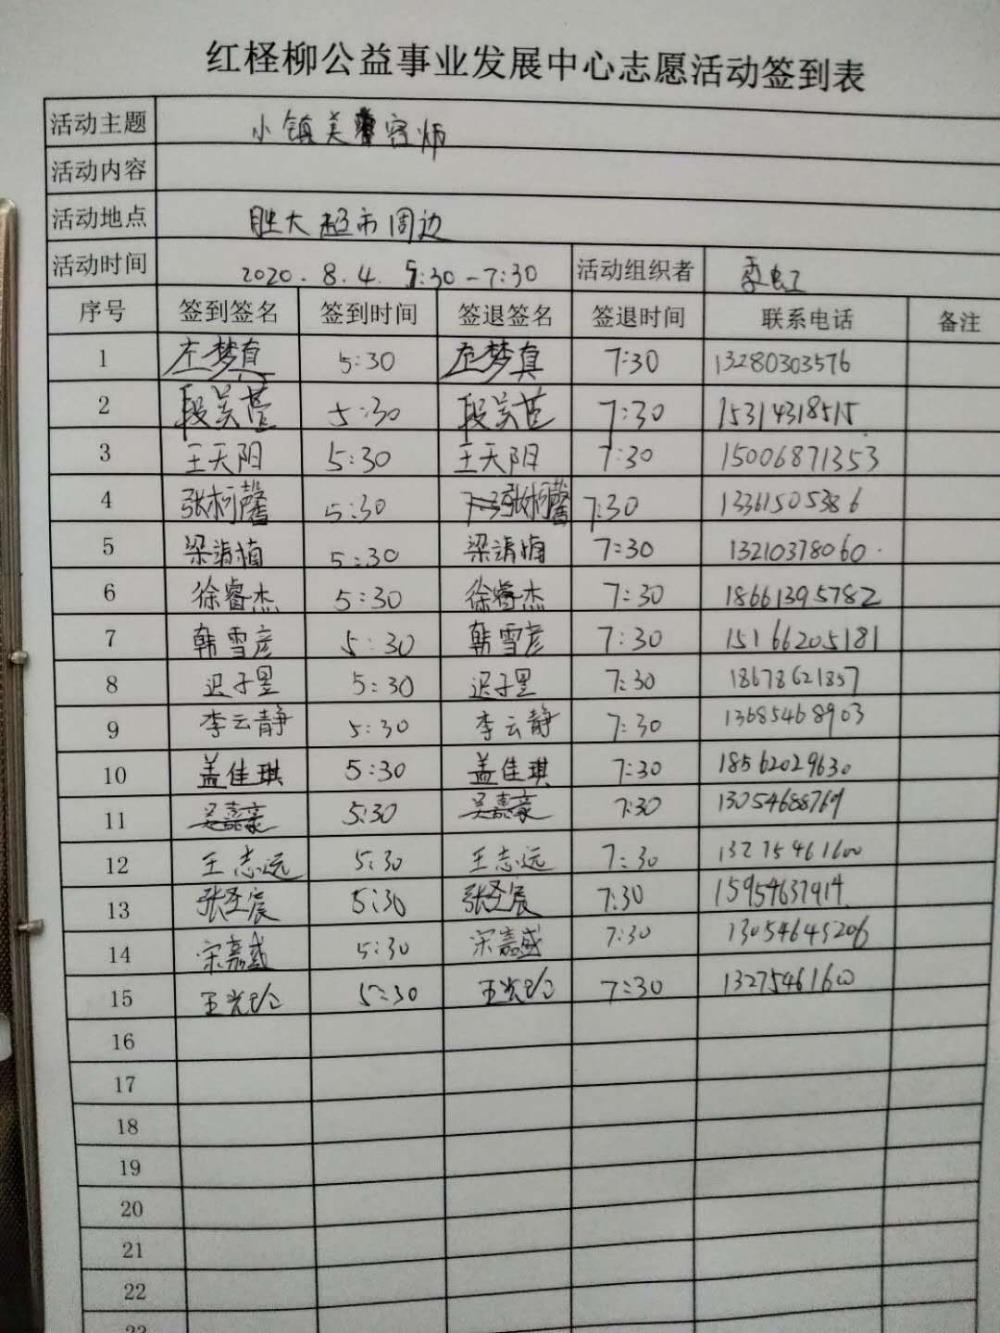 红柽柳公益事业发展中心志愿活动签到表
活动主题 小镇美容师
活动内容
活动地点 胜大超市周边
活动时间 2020.8.4 5:30-7:30 活动组织者
序号 签到签名 签到时间 签退签名 签退时间 联系电话 备注
1 左梦真 5:30 左梦真 7:30 13280303576
2 段昊萱 5:30 段昊萱 7:30 15314318515
3 王天阳 5:30 王天阳 7:30 15006871353
4 张柯馨 5:30 张柯馨 7:30 13361505386
5 梁清楠 5:30 梁清楠 7:30 13210378060
6 徐睿杰 5:30 徐睿杰 7:30 18661395782
7 韩雪彦 5:30 韩雪彦 7:30 15166205181
8 迟子昱 5:30 迟子昱 7:30 18678621857
9 李云静 5:30 李云静 7:30 13685468903
10 盖佳琪 5:30 盖佳琪 7:30 18562029630
11 吴嘉豪 5:30 吴嘉豪 7:30 13054688769
12 王志远 5:30 王志远 7:30 13275461600
13 张圣宸 5:30 张圣宸 7:30 15954637914
14 宋嘉盛 5:30 宋嘉盛 7:30 13054645206
15 5:30 7:30 13275461600
16
17
18
19
20
21
22
23